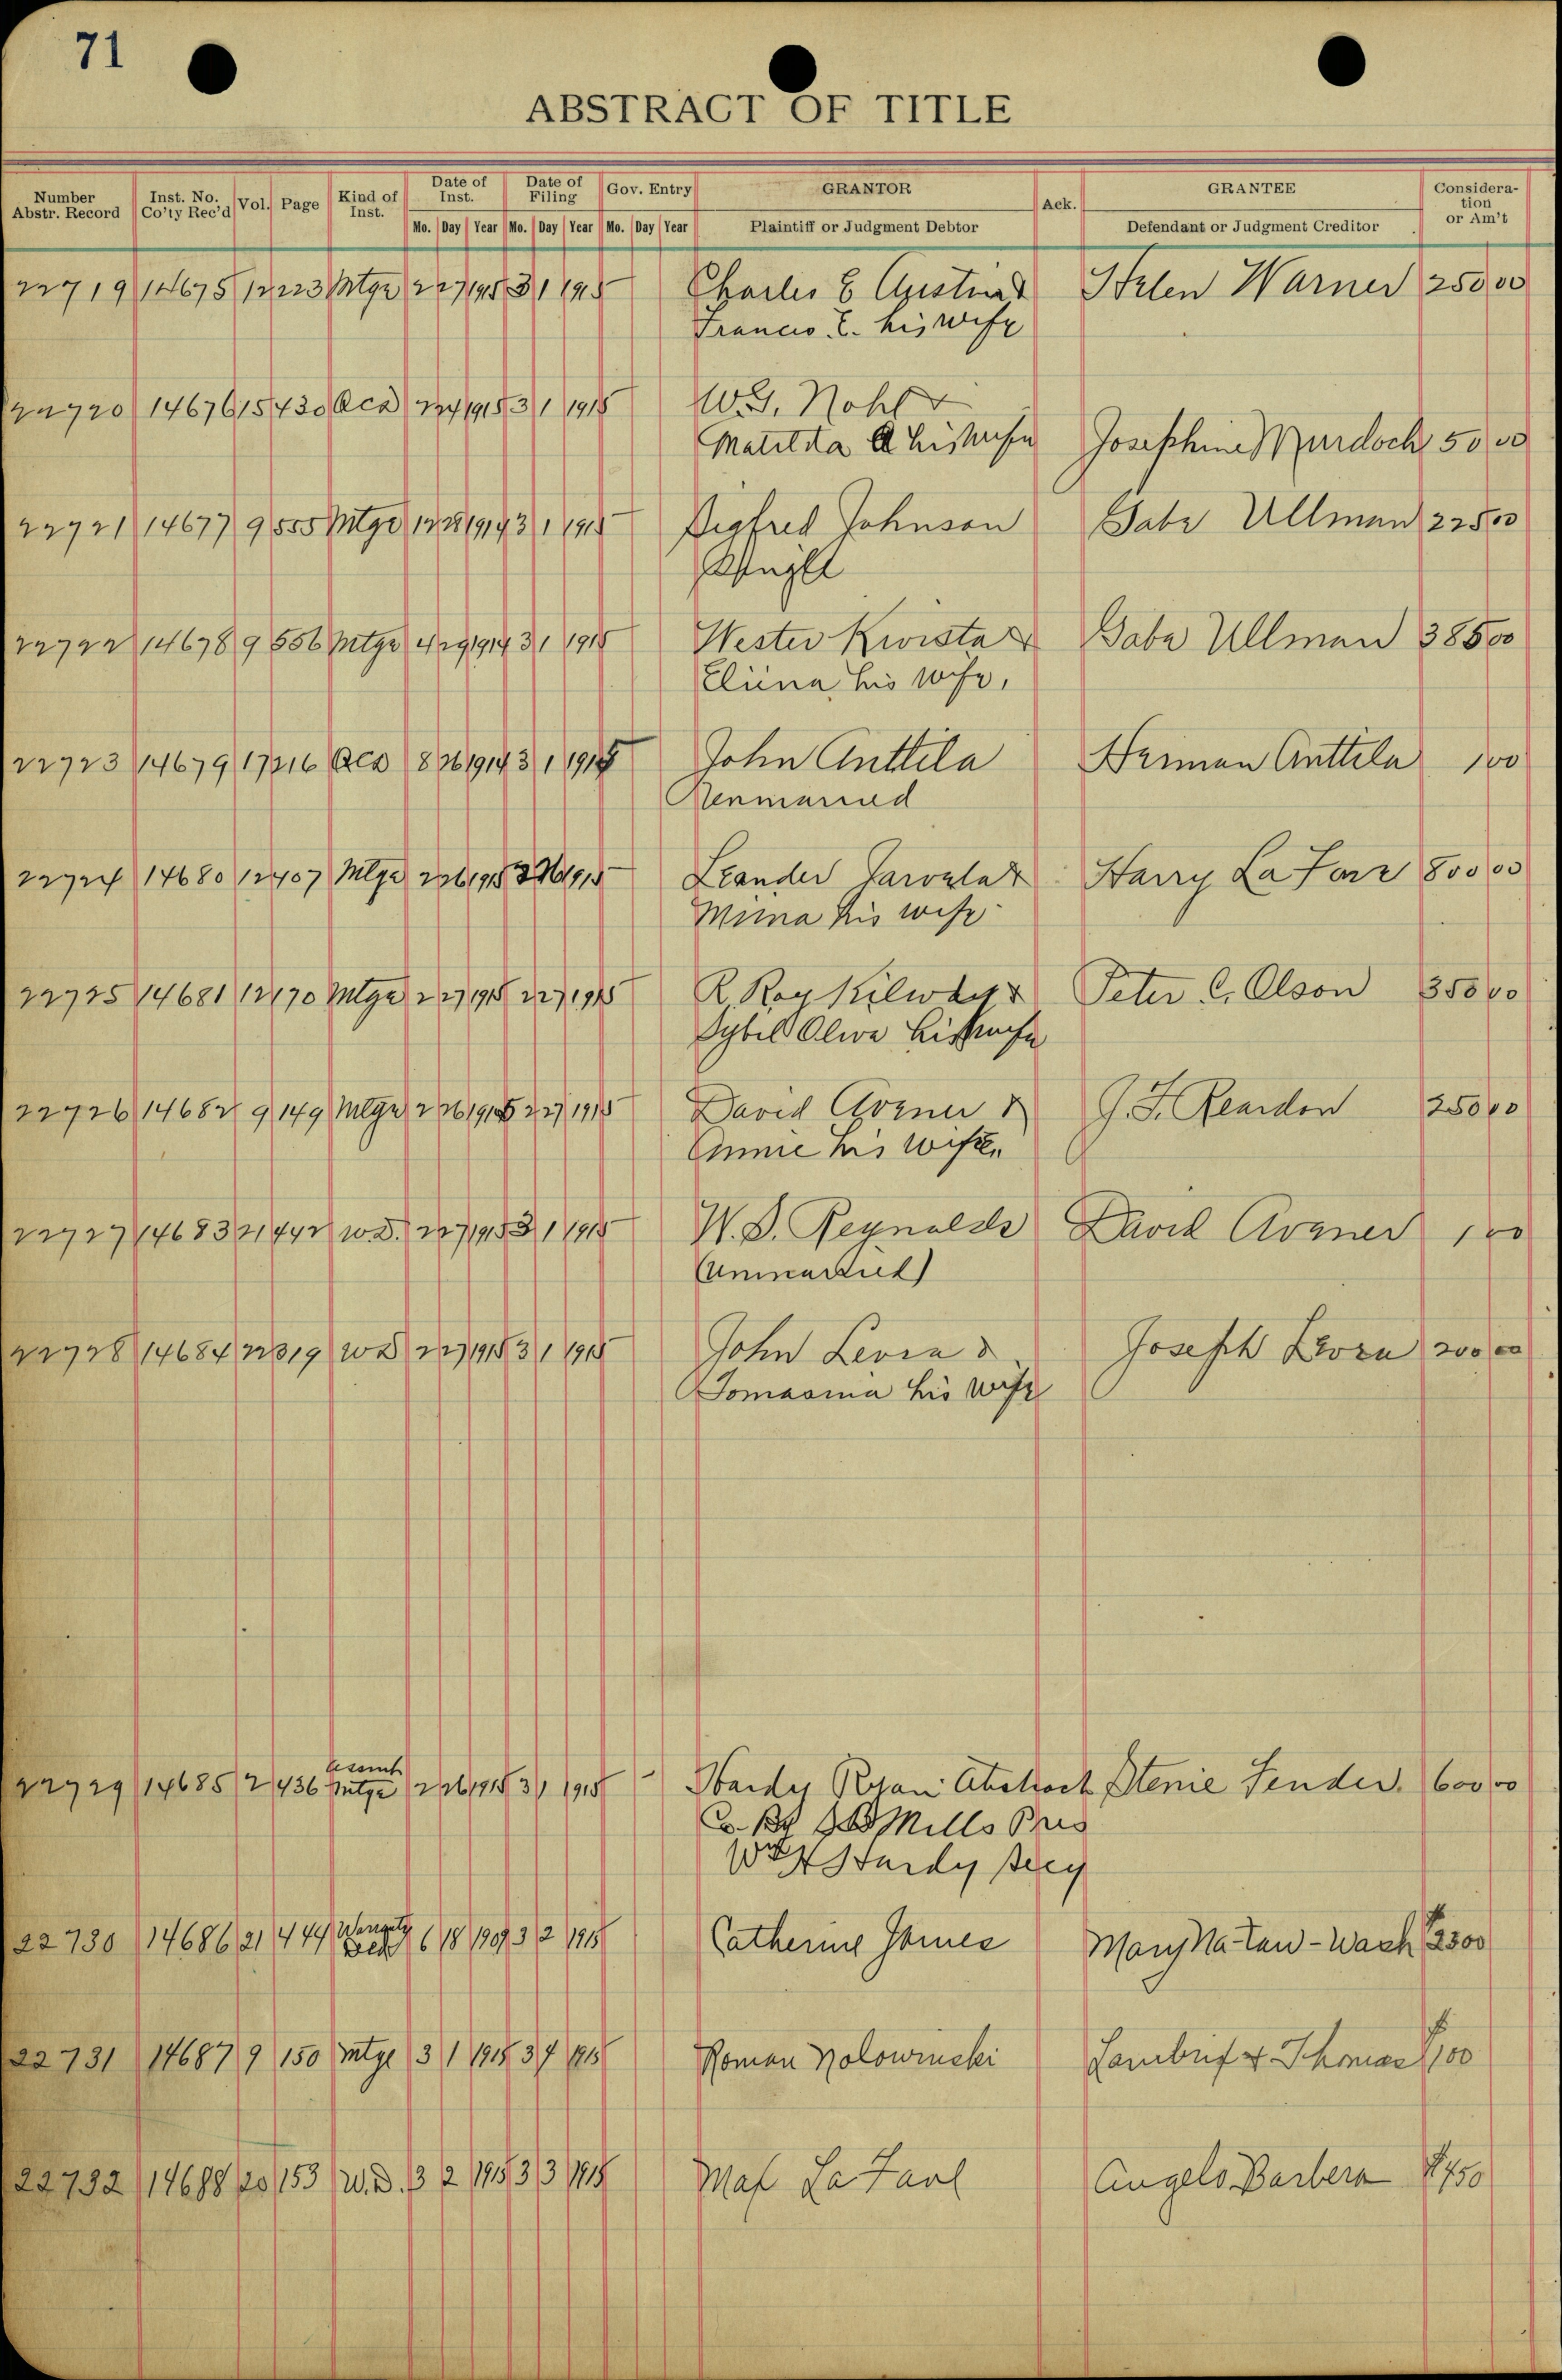 71
ABSTRACT OF TITLE
Number Abstr. Record Inst. No. Co'ty Rec'd Vol. Page Kind of Inst. Date of Inst. Date of Filing Gov. Entry GRANTOR Ack. GRANTEE Consideration or Am't
Mo. Day Year Mo. Day Year Mo. Day Year Plaintiff or Judgment Debtor Defendant or Judgment Creditor
22719 14675 12 223 Mtge 2 27 1915 3 1 1915 Charles E Austin & Helen Warner 250 00
Francis E. his wife
22720 14676 15 430 1915 3 1 1915 W.G. Nohl &
Matilda A his wife Josephine Murdoch 50 00
22721 14677 9 555 Mtge 12 28 1914 3 1 1915 Sigfred Johnson Gabe Ullman 225 00
Single
22722 14678 9 556 Mtge 4 29 1914 3 1 1915 Wester Kivista & Gabe Ullman 385 00
Eliina his wife,
22723 14679 17 216 8 26 1914 3 1 1915 John Anttila Herman Anttila 1 00
22724 14680 12 407 Mtge 2 26 1915 2 26 1915 Leander & Harry 800 00
Miina his wife
22725 14681 12 170 Mtge 2 27 1915 2 27 1915 R. Roy & Peter C. Olson 350 00
Sybel Olive his wife
22726 14682 9 149 Mtge 2 26 1915 2 27 1915 David Avner & G. F. Reardon 250 00
Annie his wife.
22727 14683 21 442 W.D. 2 27 1915 3 1 1915 W. D. Reynolds David Avner 1 00
(unmarried)
22728 14684 22 319 WD 2 27 1915 3 1 1915 John Levra & Joseph Levra 200 00
Tomasina his wife
22729 14685 2 436 Assmt Mtge 2 26 1915 3 1 1915 Hardy Ryan Abstract Stenie Sender. 600 00
Co. By Mills Pres
Hardy Secy
22730 14686 21 444 Warranty Deed 6 18 1909 3 2 1915 Catherine James Mary Na-Tau-Wash $2300
22731 14687 9 150 Mtge 3 1 1915 3 1915 Roman Nolowinski & Thomas $100
22732 14688 20 153 W.D. 3 2 1915 3 3 1915 Angelo Barbera $450